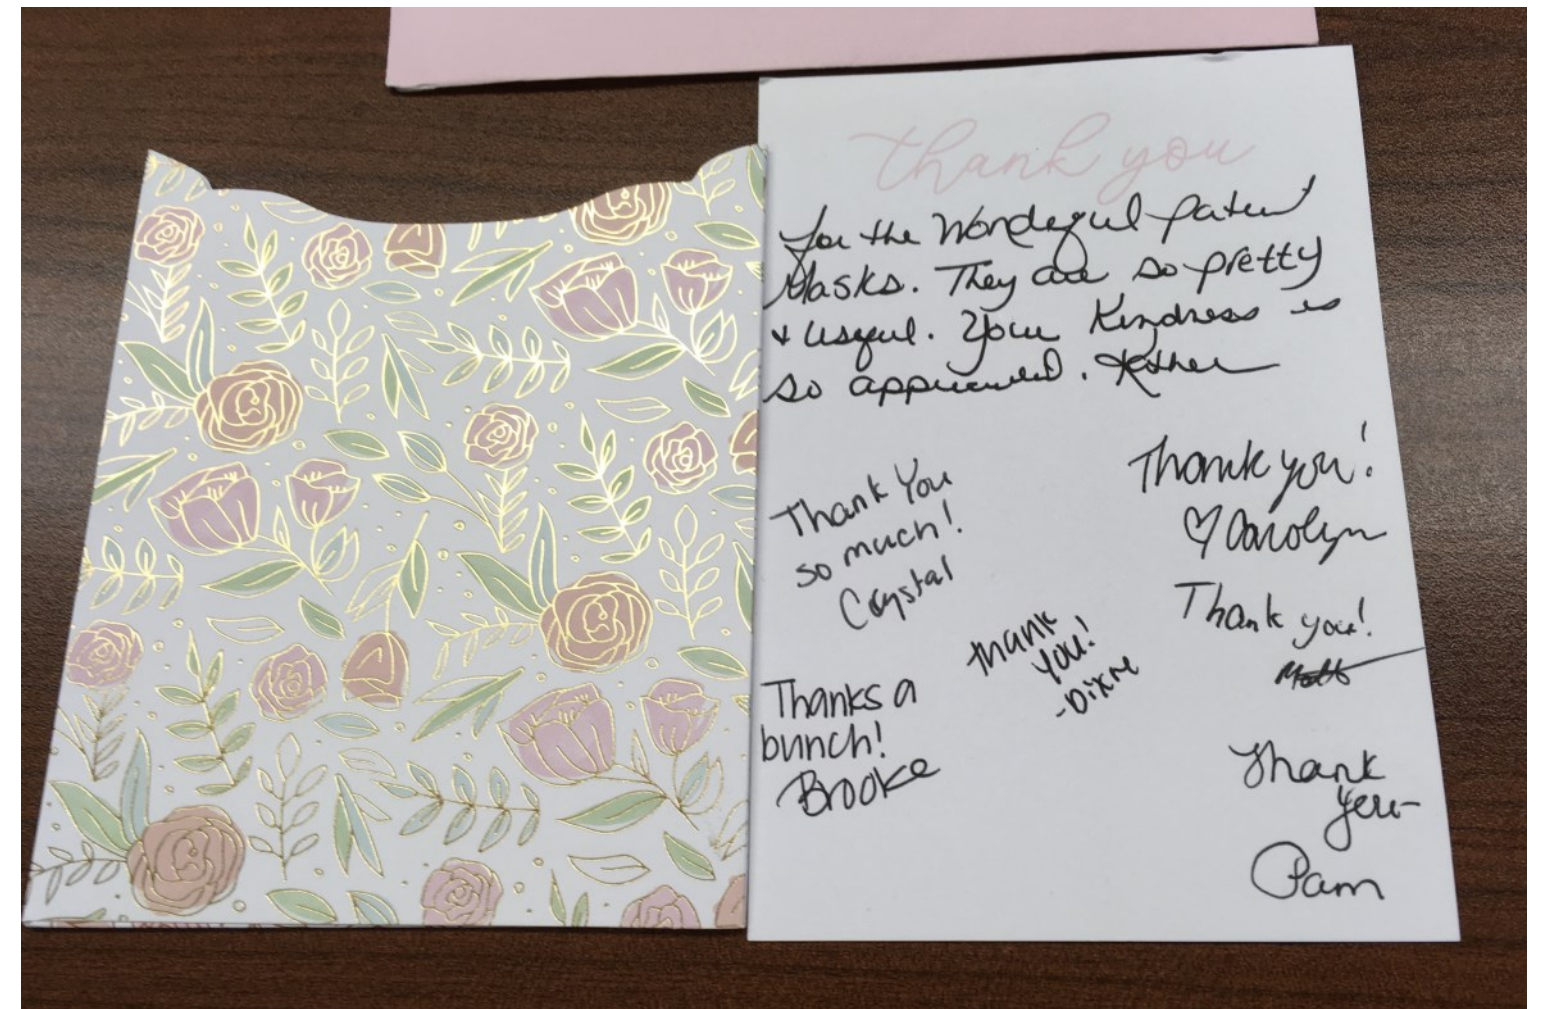 thank you
for the Wonderful patient
Masks. They are so pretty
+ useful. Your Kindness is
so appreciated.
Thank you!
♡ Carolyn
Thank You
so much!
Crystal
Thank you!
Matt
Thank
you!
-Dixie
Thanks a
bunch!
Brooke
Thank
you-
Pam